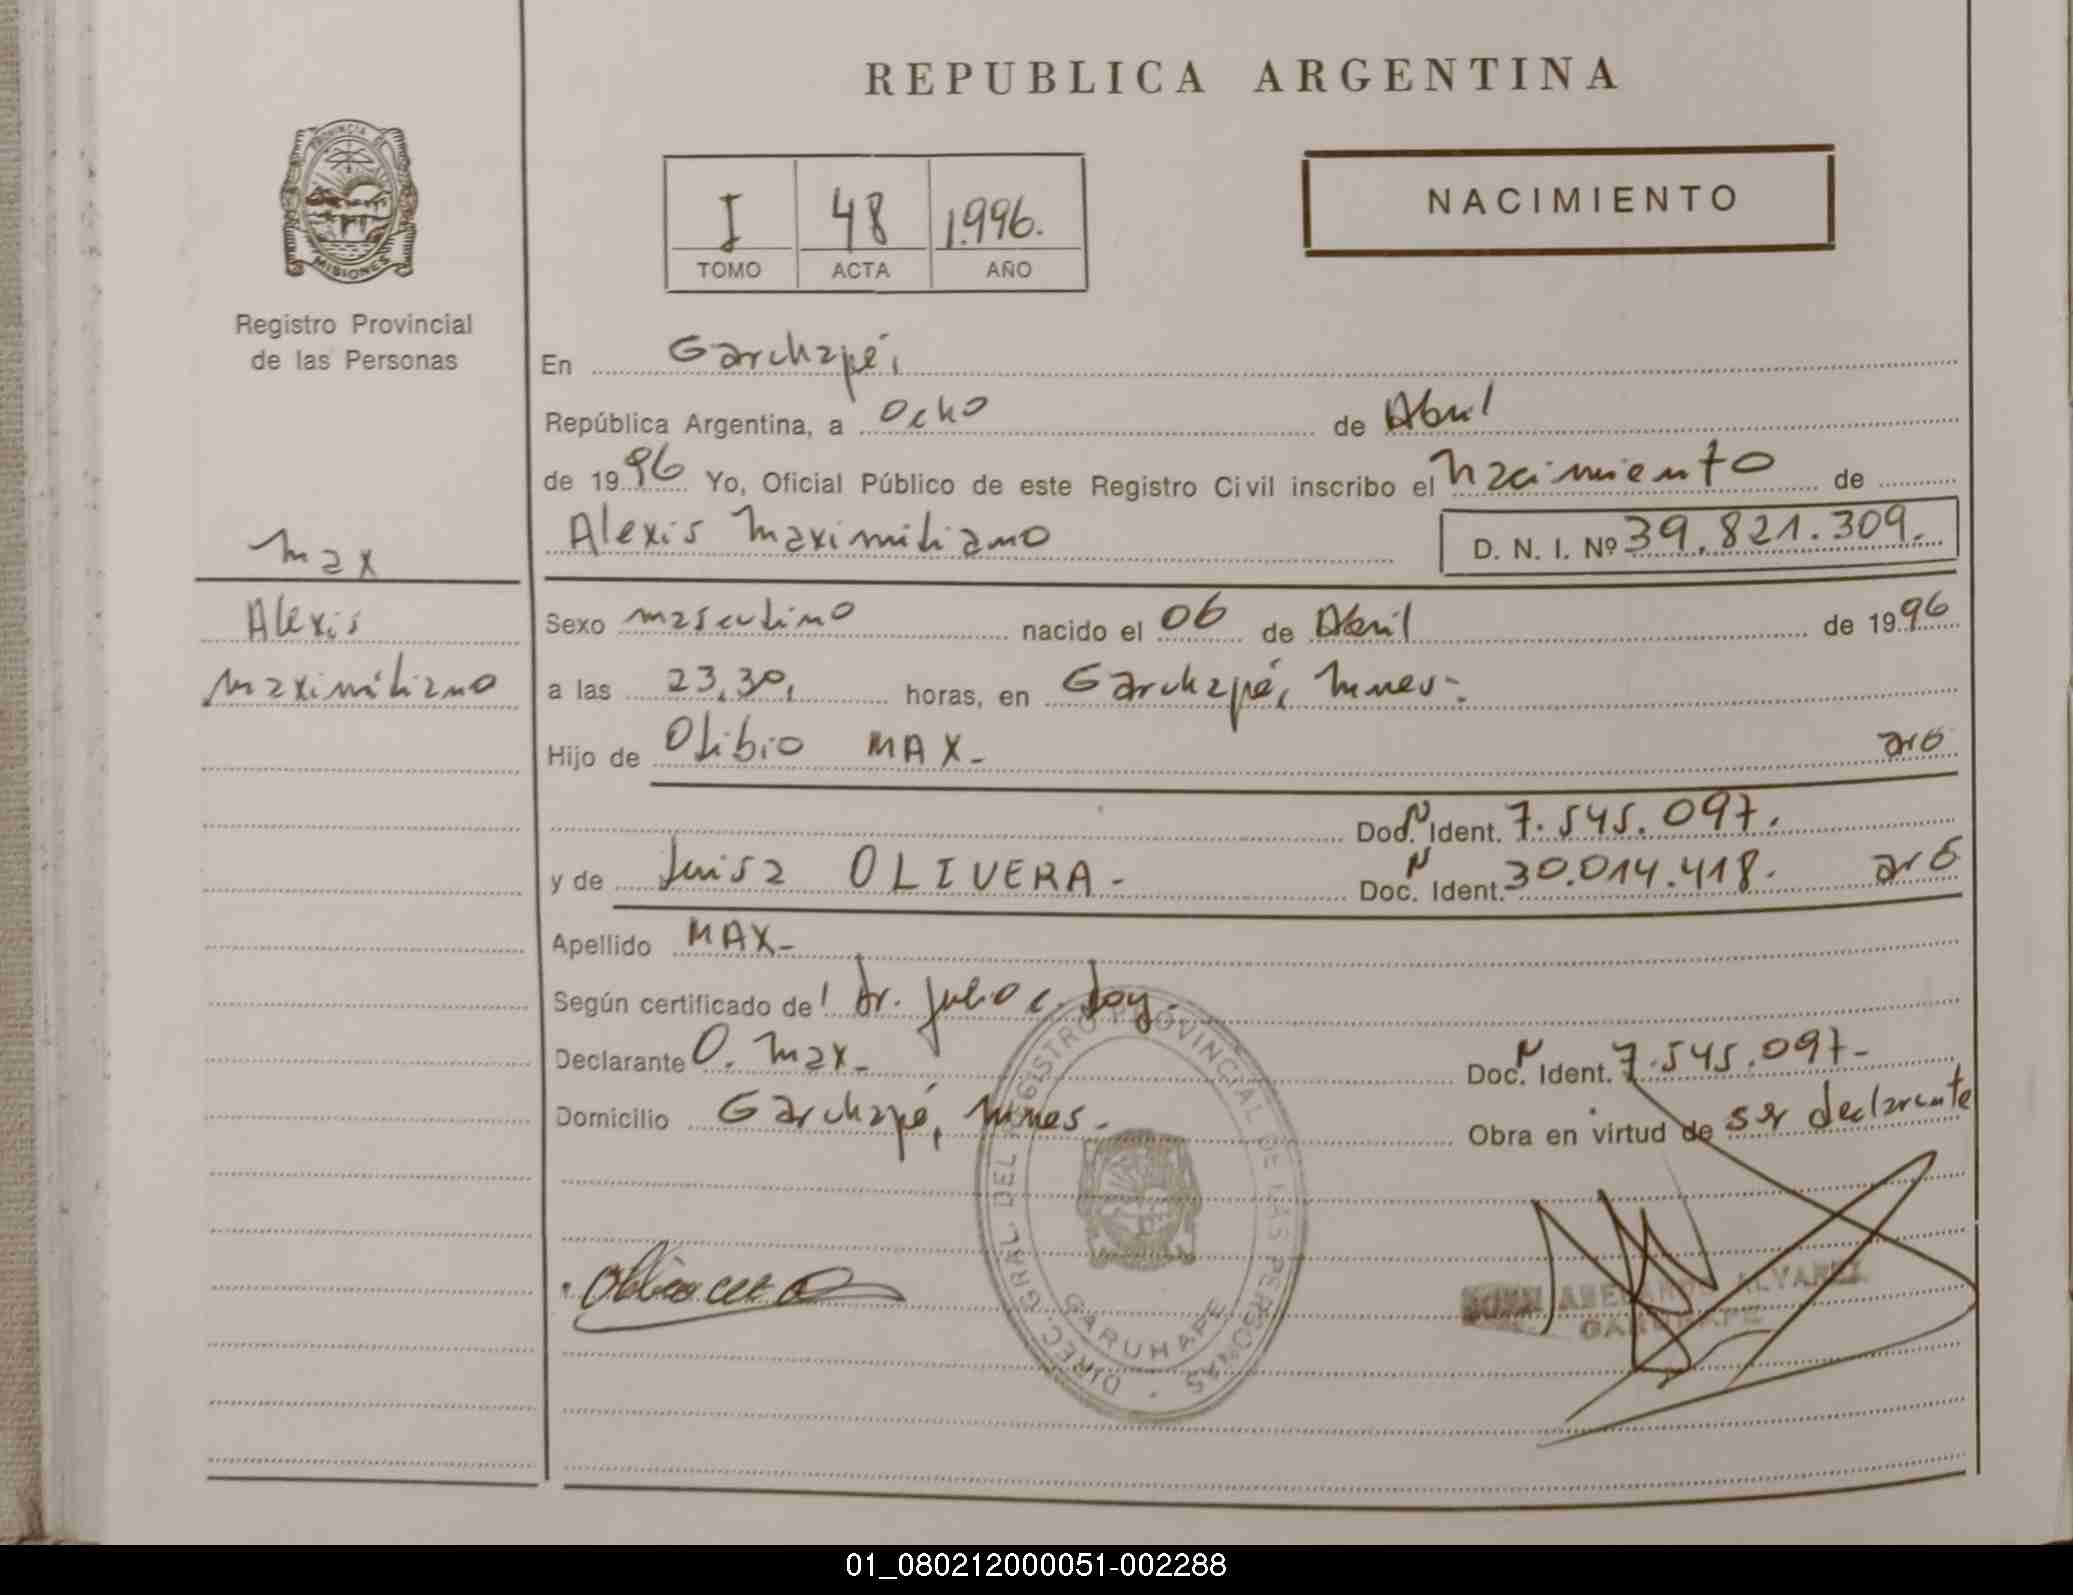 REPUBLICA ARGENTINA
PROVINCIA DE
MISIONES
Registro Provincial
de las Personas
I 48 1.996.
TOMO ACTA AÑO
NACIMIENTO
En Garuhapé,
República Argentina, a ocho de Abril
de 1996 Yo, Oficial Público de este Registro Civil inscribo el nacimiento de
Alexis Maximiliano D. N. I. Nº 39.821.309.
Max
Alexis
Maximiliano
Sexo masculino nacido el 06 de Abril de 1996
a las 23,30, horas, en Garuhapé,
Hijo de Olibio MAX- arg
Doc. N Ident. 7.545.097.
y de Luisa OLIVERA- Doc. N Ident. 30.014.418. arg
Apellido MAX-
Según certificado del Dr. Julio c.
Declarante O. Max- Doc. N Ident. 7.545.097-
Domicilio Garuhapé, Obra en virtud de ser declarante
DIREC. GRAL. DEL REGISTRO PROVINCIAL DE LAS PERSONAS
GARUHAPE
ALVAREZ
GARUHAPE
01_080212000051-002288